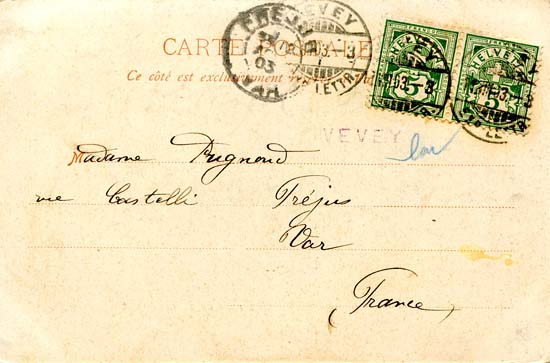 CARTE POSTALE
Ce côté est exclusivement
VEVEY
03
HELVETIA
5
5
VEVEY
Madame Pugnond
rue Castelli Fréjus
Var
(France)